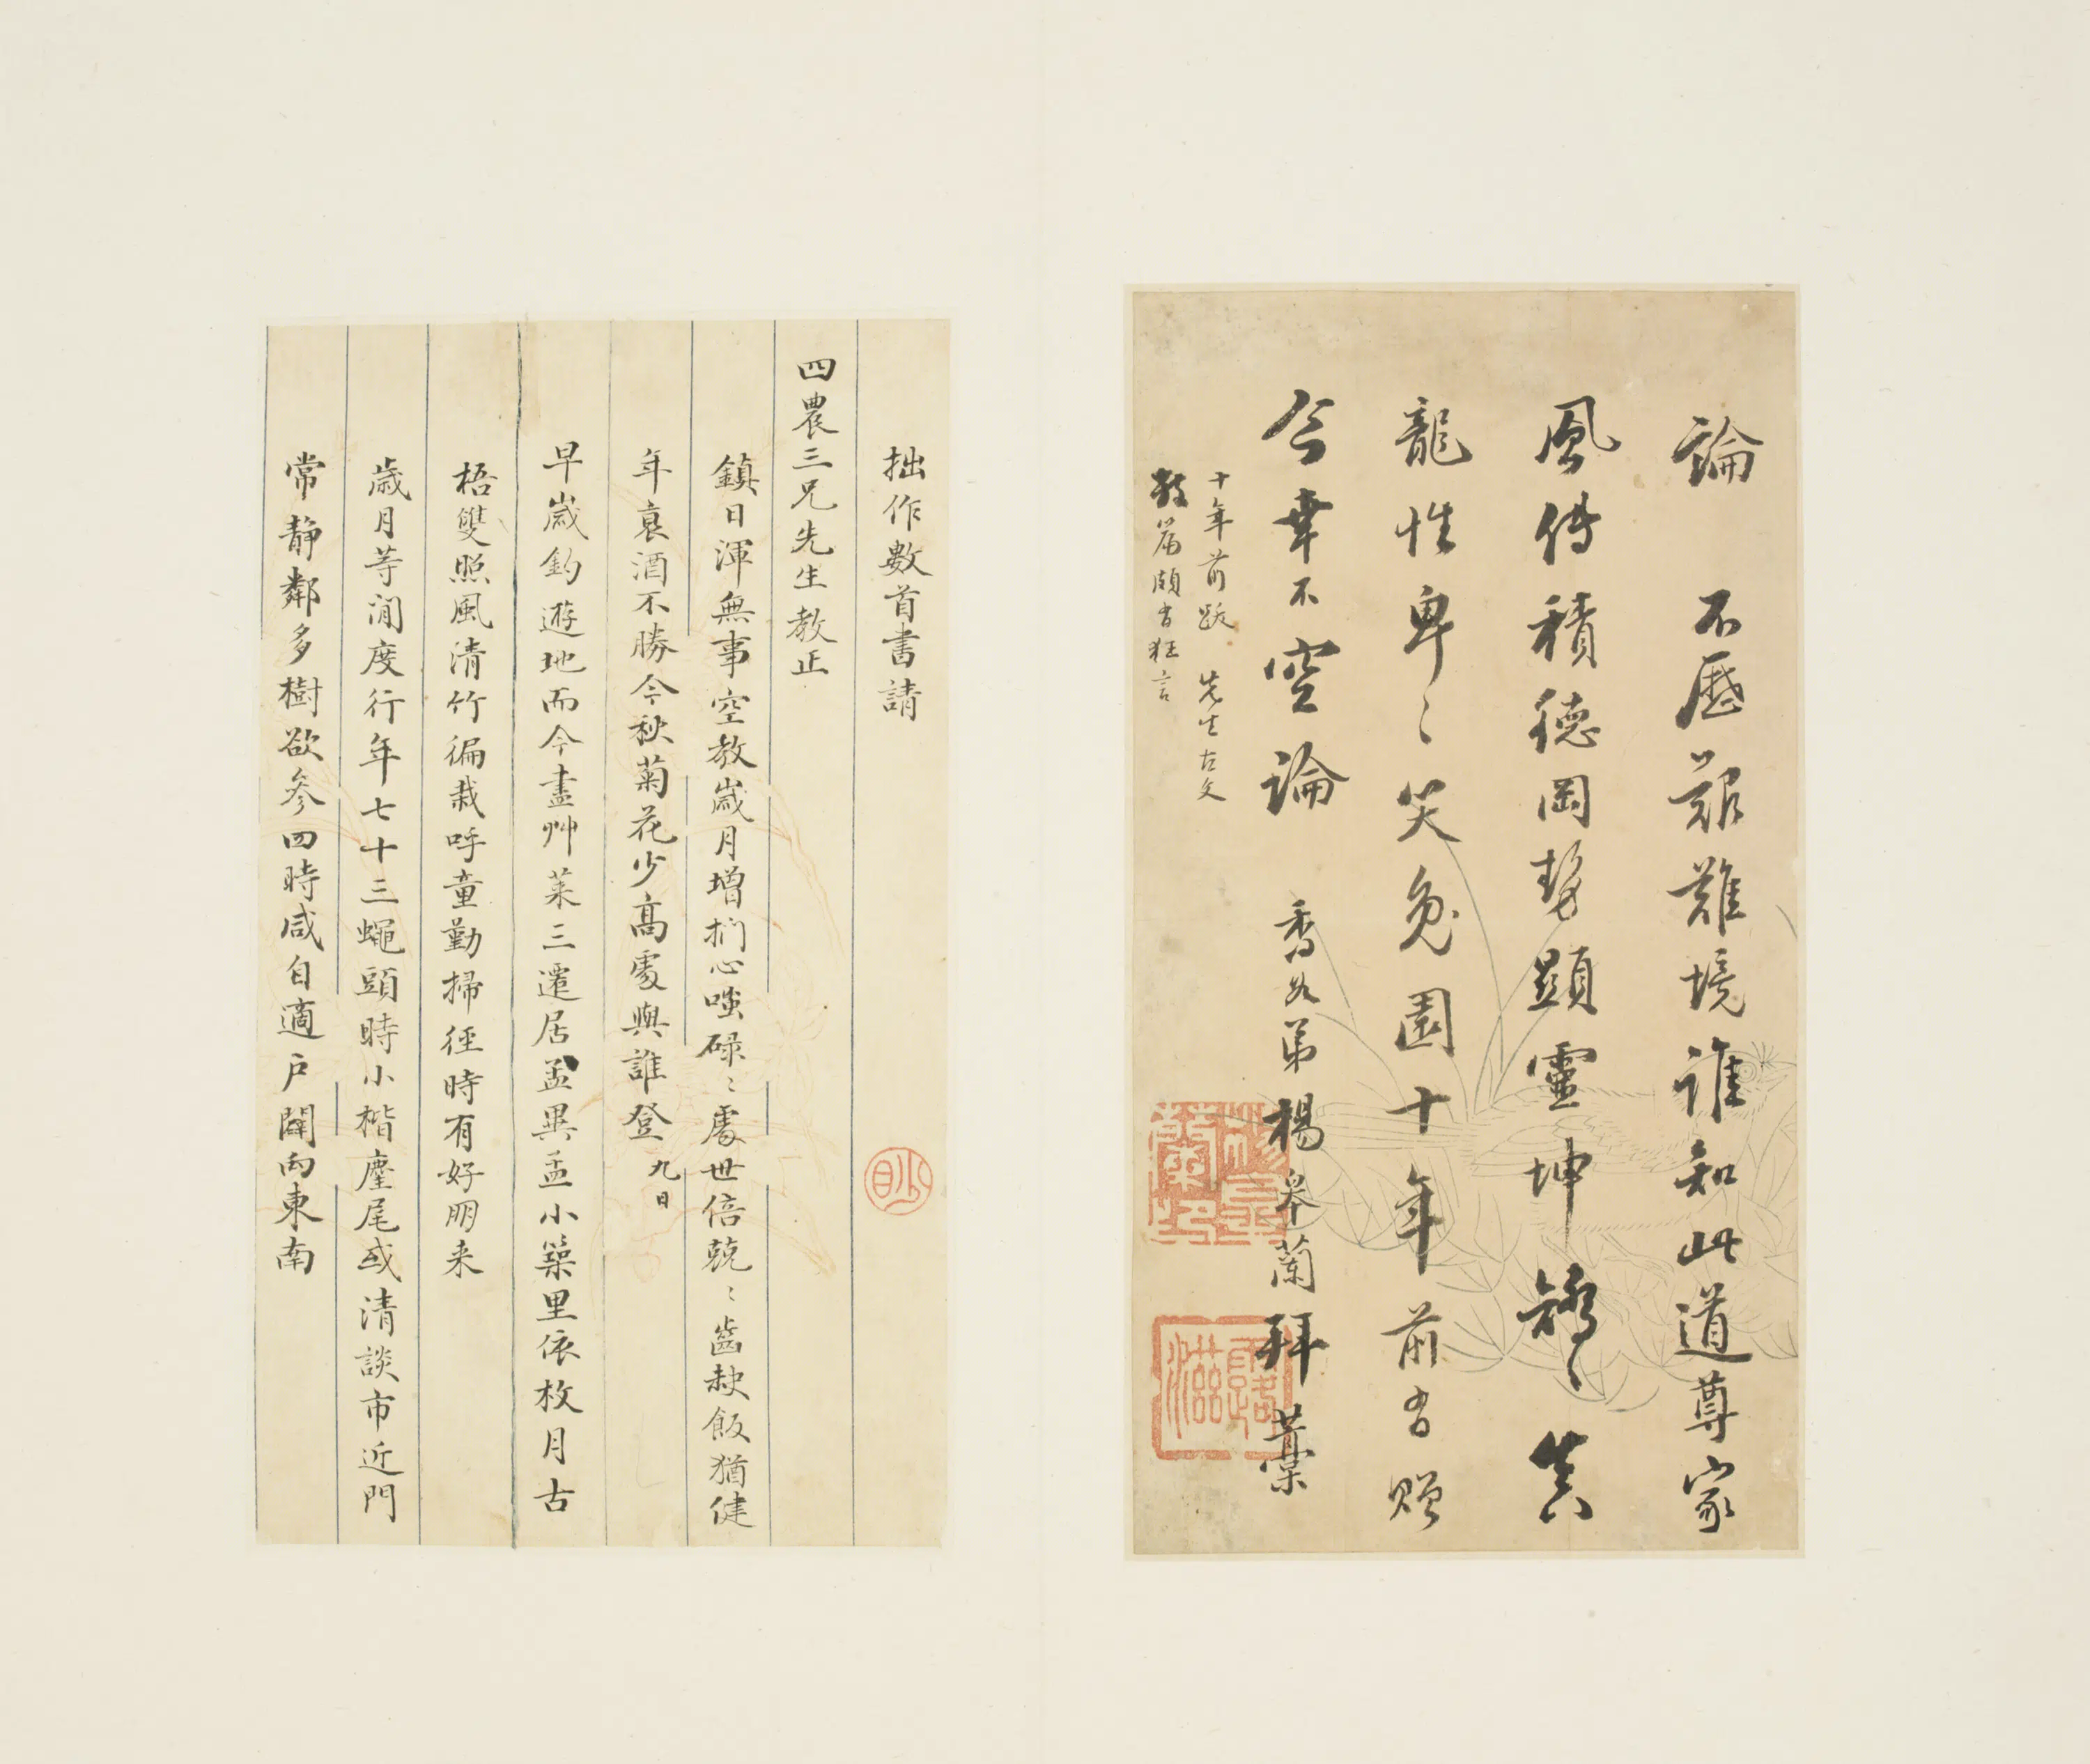 論 不歷艱難境誰知此道尊家
風傳積德岡勢顯靈坤矯〻笑
龍性卑〻笑兔園十年前有贈
今幸不空論 香如弟楊皋蘭拜藁
十年前跋 先生古文
數篇頗有狂言
拙作數首書請
四農三兄先生教正
鎮日渾無事空教歲月增捫心嗤碌〻處世倍兢〻齒缺飯猶健
年衰酒不勝今秋菊花少高處與誰登 九日
早歲釣遊地而今盡艸萊三遷居孟異孟小築里依枚月古
梧雙照風清竹徧栽呼童勤掃徑時有好朋来
歲月等閒度行年七十三蠅頭時小楷麈尾或清談市近門
常静鄰多樹欲參四時咸自適戶闢向東南